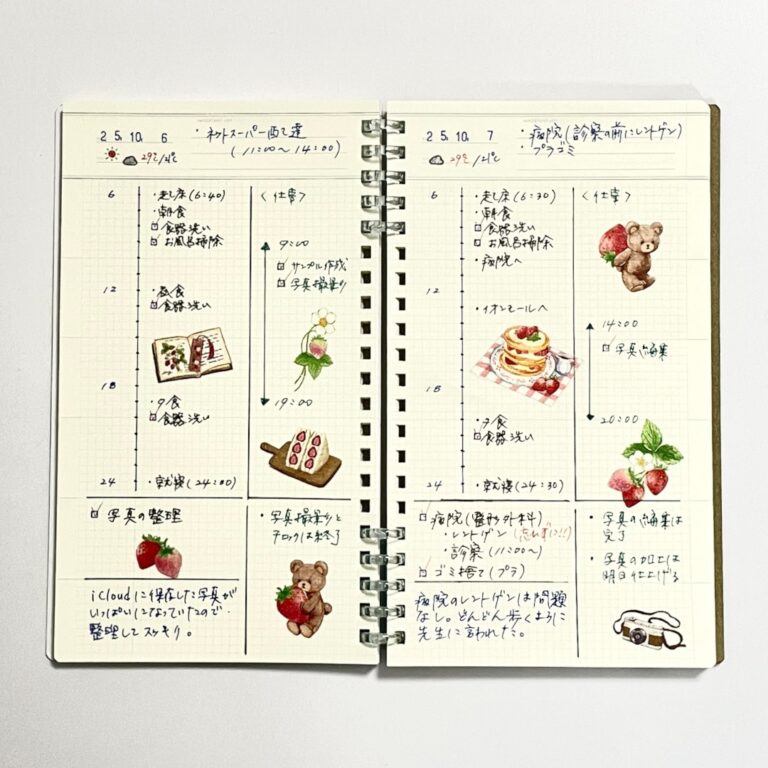 25. 10. 6
・ネットスーパー配達
(11:00〜14:00)
29℃/21℃
6
・起床(6:40)
・朝食
食器洗い
お風呂掃除
12
・昼食
食器洗い
18
・夕食
食器洗い
24
・就寝(24:00)
<仕事>
9:00
サンプル作成
写真撮影
19:00
写真の整理
・写真撮影と
チェックは終了
iCloudに保存した写真が
いっぱいになっていたので
整理してスッキリ。
25. 10. 7
・病院(診察の前にレントゲン)
・プラゴミ
29℃/21℃
6
・起床(6:30)
・朝食
食器洗い
お風呂掃除
・病院へ
12
・イオンモールへ
18
・夕食
食器洗い
24
・就寝(24:30)
<仕事>
14:00
写真編集
20:00
病院(整形外科)
・レントゲン(忘れずに!!)
・診察(11:00〜)
ゴミ捨て(プラ)
・写真の編集は
完了
・写真の加工は
明日仕上げる
病院のレントゲンは問題
なし。どんどん歩くように
先生に言われた。